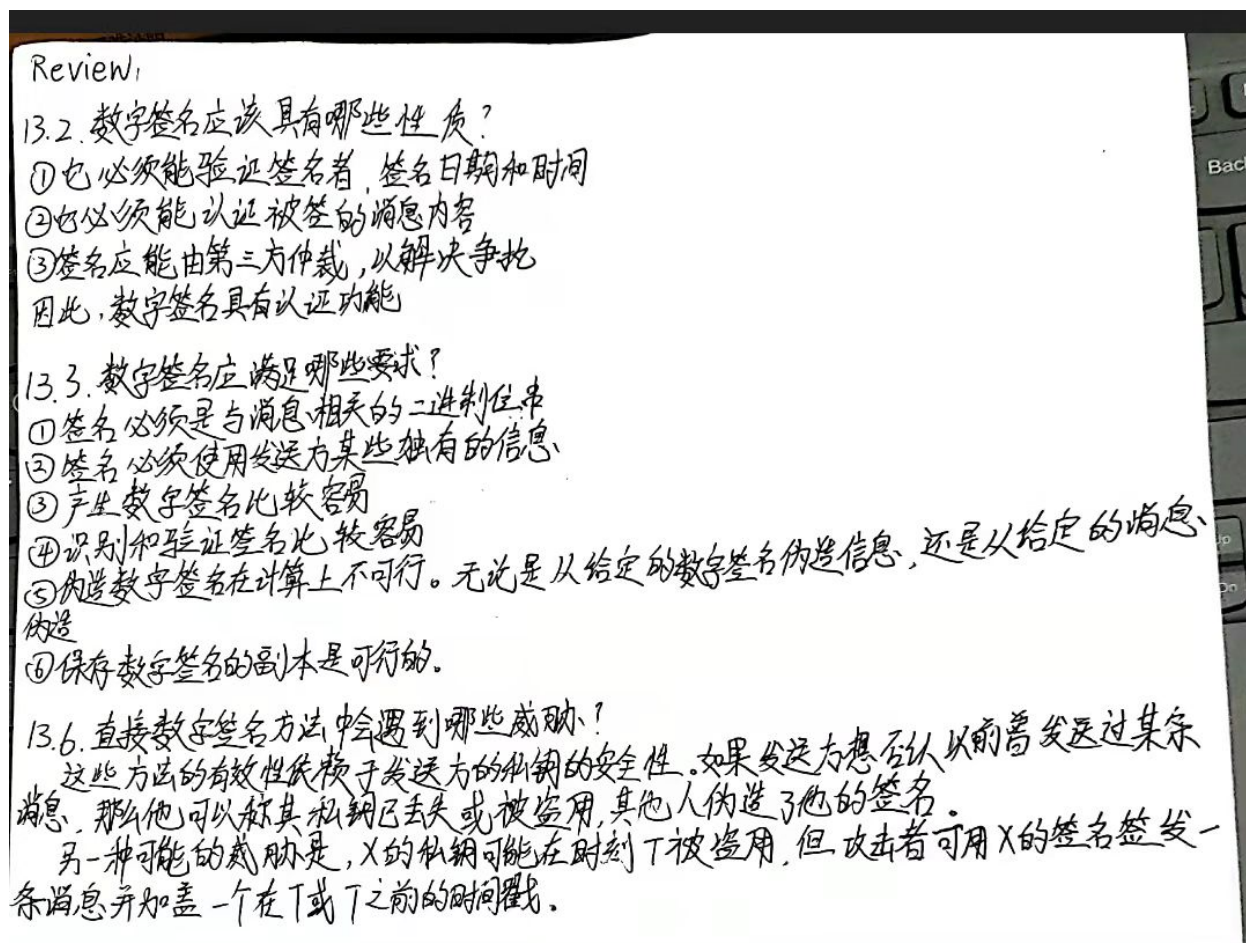 Review:
13.2.数字签名应该具有哪些性质?
①它必须能验证签名者,签名日期和时间
②它必须能认证被签的消息内容
③签名应能由第三方仲裁,以解决争执
因此,数字签名具有认证功能
13.3.数字签名应满足哪些要求?
①签名必须是与消息相关的二进制位串
②签名必须使用发送方某些独有的信息
③产生数字签名比较容易
④识别和验证签名比较容易
⑤伪造数字签名在计算上不可行。无论是从给定的数字签名伪造信息,还是从给定的消息
伪造
⑥保存数字签名的副本是可行的。
13.6.直接数字签名方法中会遇到哪些威胁?
这些方法的有效性依赖于发送方的私钥的安全性。如果发送方想否认以前曾发送过某条
消息,那么他可以称其私钥已丢失或被盗用,其他人伪造了他的签名。
另一种可能的威胁是,X的私钥可能在时刻T被盗用,但攻击者可用X的签名签发一
条消息并加盖一个在T或T之前的时间戳。